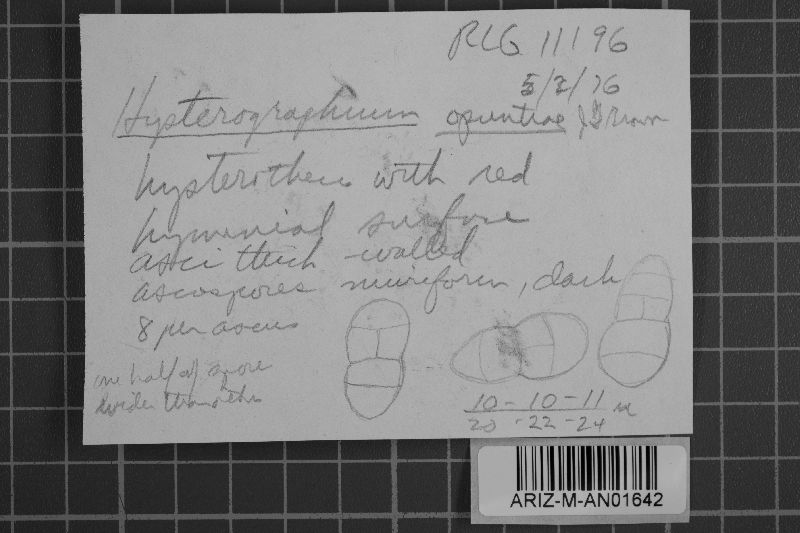 RLG 11196
5/2/76
Hysterographium opuntiae J G Brown
hysterothecia with red
hymenial surface
asci thick-walled
ascospores muriform, dark
8 per ascus
one half of spore
wider than other
10 - 10 - 11
20 - 22 - 24 u
ARIZ-M-AN01642